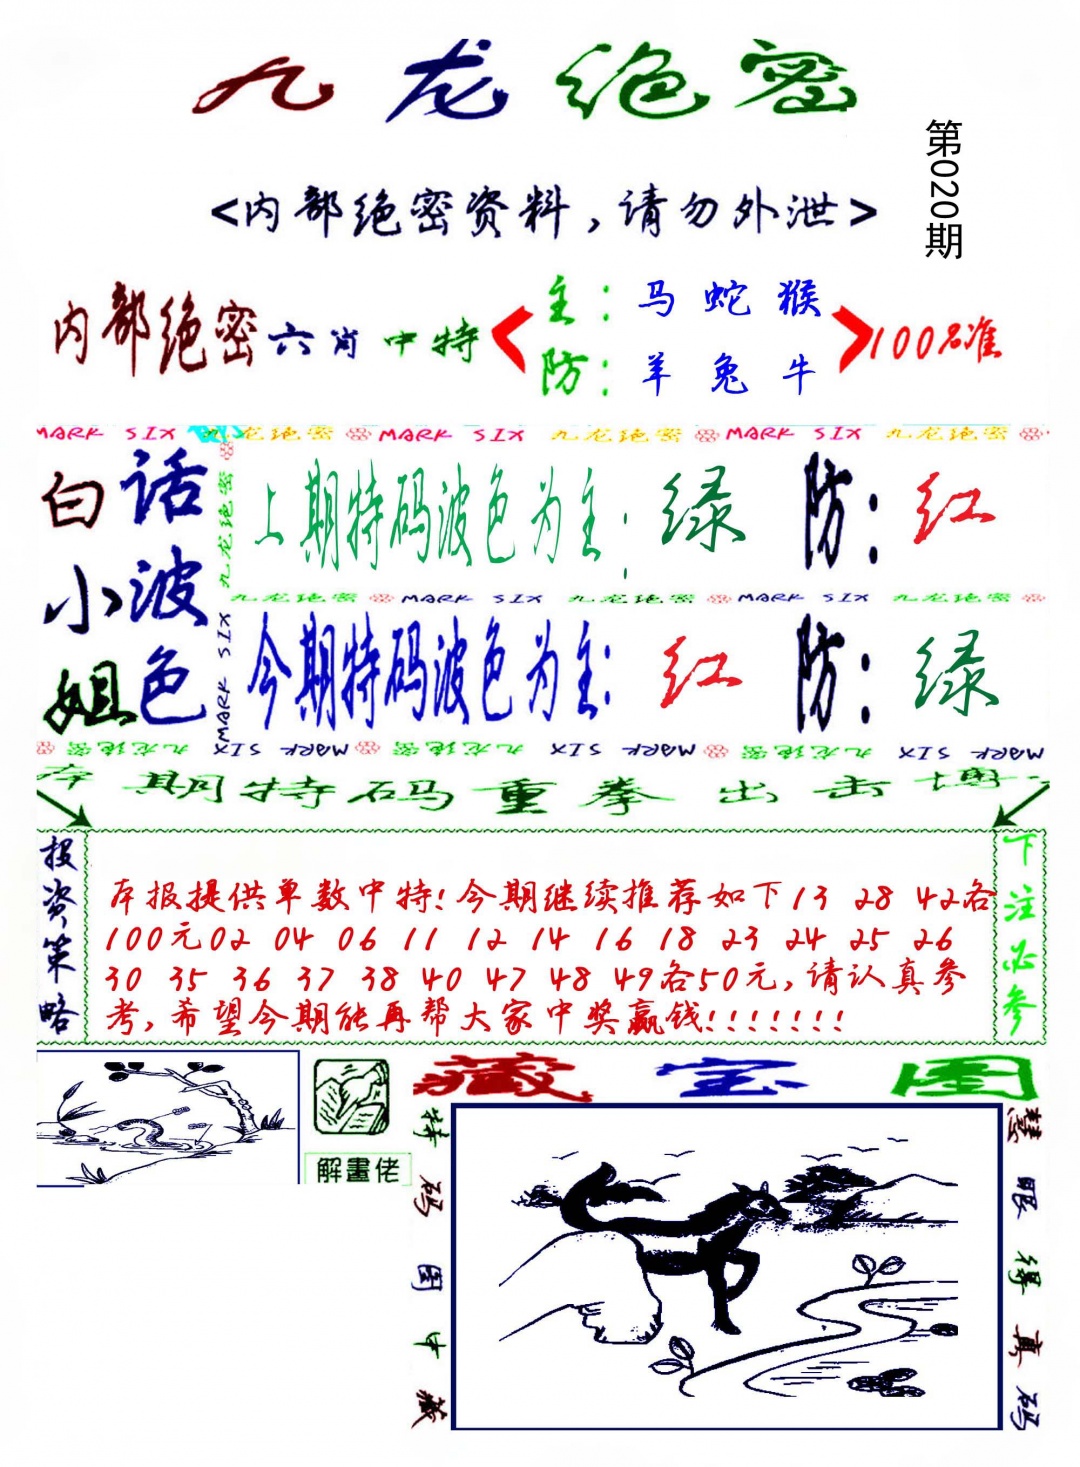 九龙绝密
第020期
<内部绝密资料,请勿外泄>
内部绝密六肖中特
主:马蛇猴
防:羊兔牛
100%准
MARK SIX 九龙绝密 MARK SIX 九龙绝密 MARK SIX 九龙绝密
白小姐
话波色
九龙绝密
MARK SIX
上期特码波色为主:绿 防:红
九龙绝密 MARK SIX 九龙绝密 MARK SIX 九龙绝密
今期特码波色为主:红 防:绿
九龙绝密 MARK SIX 九龙绝密 MARK SIX 九龙绝密 MARK SIX
本期特码重拳出击博
投资策略
下注必参
本报提供单数中特!今期继续推荐如下13 28 42各
100元02 04 06 11 12 14 16 18 23 24 25 26
30 35 36 37 38 40 47 48 49各50元,请认真参
考,希望今期能再帮大家中奖赢钱!!!!!!!
解畫佬
藏宝图
特码图中藏
慧眼得真码